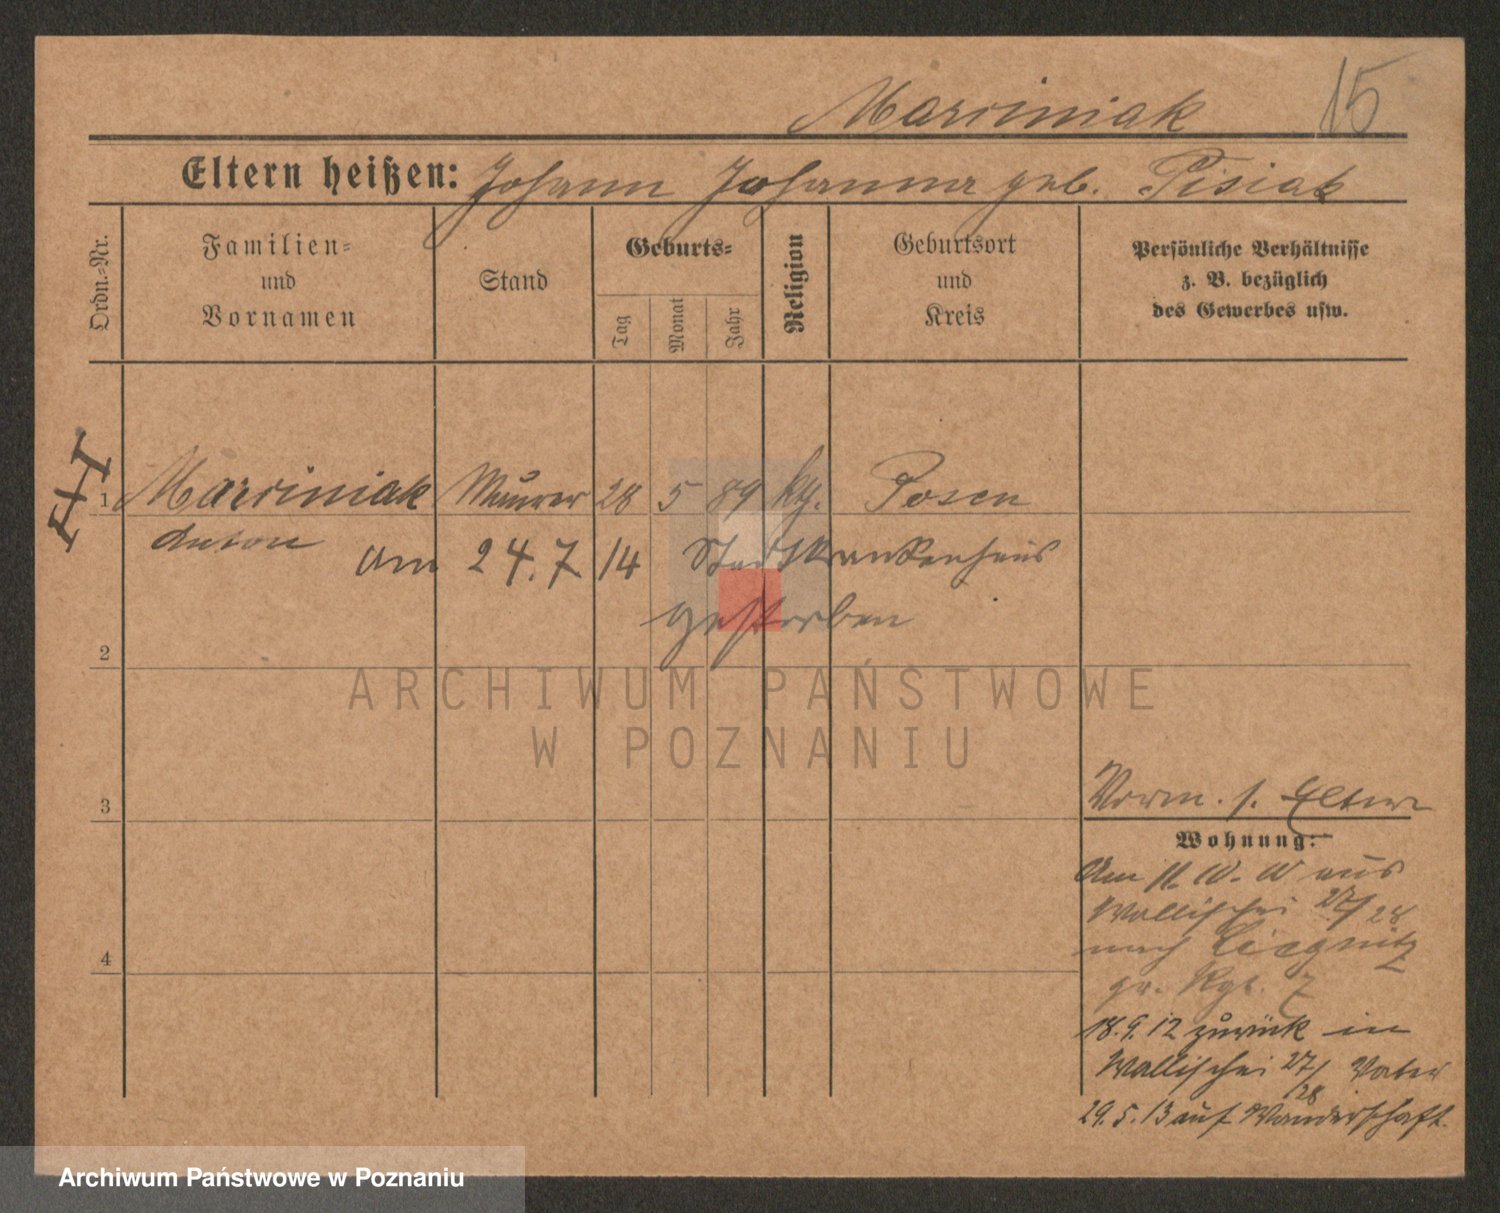 Marciniak 15
Eltern heißen: Johann Johanna geb. Pisiak
Ordn.-Nr.
Familien-
und
Vornamen
Stand
Geburts-
Tag
Monat
Jahr
Religion
Geburtsort
und
Kreis
Persönliche Verhältnisse
z. B. bezüglich
des Gewerbes usw.
1 Marciniak Maurer 28 5 89 kth. Posen
Anton
Am 24.7 14 Stadtkrankenhaus
gestorben
2
ARCHIWUM PAŃSTWOWE
W POZNANIU
3
Vorm. s. Eltern
Wohnung:
Am 11. 10. 10 aus
Wallischei 27/28
nach Liegnitz
gr. Rgt. 7
4
18.9.12 zurück in
Wallischei 27/28 Vater
29.5.13 auf Wanderschaft.
Archiwum Państwowe w Poznaniu